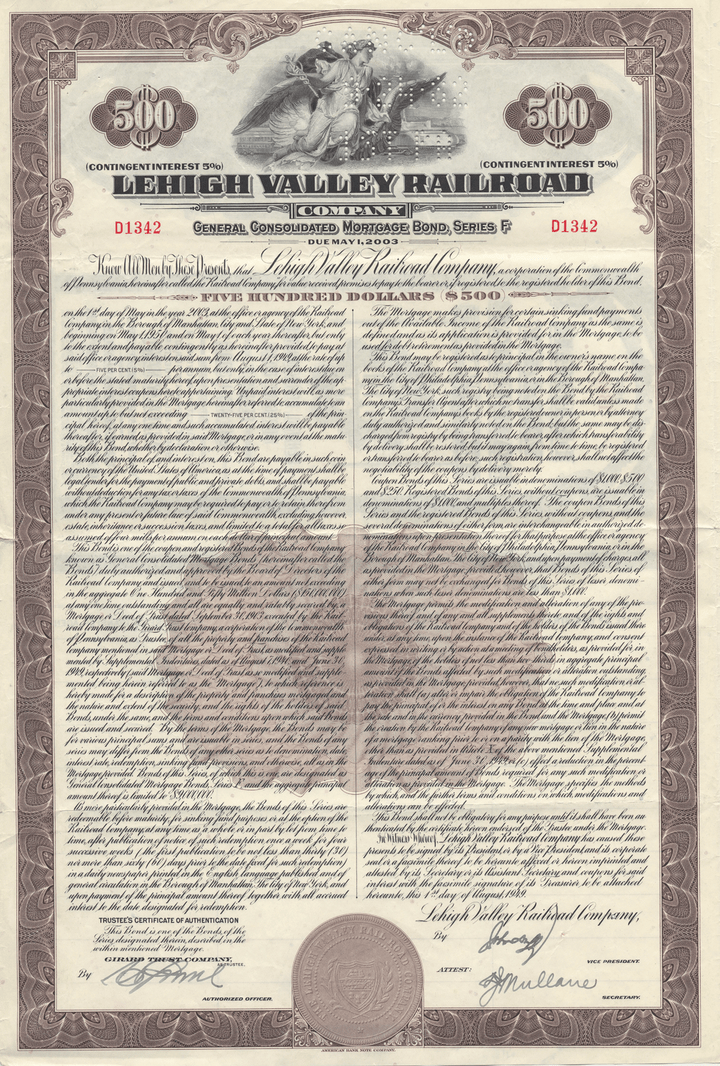 500
500
(CONTINGENT INTEREST 5%)
(CONTINGENT INTEREST 5%)
LEHIGH VALLEY RAILROAD
COMPANY
D1342
GENERAL CONSOLIDATED MORTGAGE BOND, SERIES F
D1342
DUE MAY 1, 2003
Know All Men by These Presents, that Lehigh Valley Railroad Company, a corporation of the Commonwealth
of Pennsylvania, hereinafter called the Railroad Company, for value received promises to pay to the bearer, or if registered to the registered holder of this Bond,
FIVE HUNDRED DOLLARS ($500)
on the 1st day of May in the year 2003, at the office or agency of the Railroad
Company in the Borough of Manhattan, City and State of New York, and
beginning on May 1, 1950 and on May 1 of each year thereafter, but only
to the extent, and at the contingently as hereinafter provided, to pay at
said office or agency, interest on said sum, from August 1, 1949, at the rate of up
to FIVE PER CENT (5%) per annum, but only, in the case of interest due on
or before the stated maturity hereof, upon presentation and surrender of the ap-
propriate interest coupons hereto appertaining. Unpaid interest will, as more
particularly provided in the Mortgage hereinafter referred to, accumulate in an
amount up to but not exceeding TWENTY-FIVE PER CENT (25%) of the prin-
cipal hereof, at any one time, and such accumulated interest will be payable
thereafter, if earned, as provided in said Mortgage, or in any event at the matu-
rity of this Bond, whether by declaration or otherwise.
Both the principal of, and interest on, this Bond are payable in such coin
or currency of the United States of America, as at the time of payment shall be
legal tender for the payment of public and private debts, and shall be payable
without deduction for any tax or taxes of the Commonwealth of Pennsylvania,
which the Railroad Company may be required to pay or to retain therefrom
under any present or future law of said Commonwealth, excluding, however,
estate, inheritance or succession taxes, and limited to a total for all taxes so
assumed of four mills per annum on each dollar of principal amount.
This Bond is one of the coupon and registered Bonds of the Railroad Company,
known as General Consolidated Mortgage Bonds (hereinafter called the
Bonds) duly authorized and approved by the Board of Directors of the
Railroad Company, and issued and to be issued, to an amount not exceeding
in the aggregate One Hundred and Fifty Million Dollars ($150,000,000)
at any one time outstanding and all are equally and ratably secured by a
Mortgage or Deed of Trust dated September 30, 1903 executed by the Rail-
road Company to the Girard Trust Company, a corporation of the Commonwealth
of Pennsylvania, as Trustee, of all the property and franchises of the Railroad
Company mentioned in said Mortgage or Deed of Trust, as modified and supple-
mented by Supplemental Indentures, dated as of August 1, 1940, and June 30,
1949, respectively (said Mortgage or Deed of Trust as modified and supple-
mented being herein referred to as the Mortgage), to which reference is
hereby made for a description of the property and franchises mortgaged and
the nature and extent of the security, and the rights of the holders of said
Bonds, under the same, and the terms and conditions upon which said Bonds
are issued and secured. By the terms of the Mortgage, the Bonds may be
for various principal sums, and are issuable in series, and the Bonds of any
series may differ from the Bonds of any other series as to denomination, date,
interest rate, redemption, sinking fund provisions, and otherwise, all as in the
Mortgage provided. Bonds of this Series, of which this is one, are designated as
General Consolidated Mortgage Bonds, Series F and the aggregate principal
amount thereof is limited to
As more particularly provided in the Mortgage, the Bonds of this Series are
redeemable before maturity, for sinking fund purposes or at the option of the
Railroad Company, at any time as a whole or in part by lot from time to
time, after publication of notice of such redemption once a week for four
successive weeks (the first publication to be not less than thirty (30)
nor more than sixty (60) days prior to the date fixed for such redemption)
in a daily newspaper printed in the English language published and of
general circulation in the Borough of Manhattan, The City of New York, and
upon payment of the principal amount thereof together with all accrued
interest to the date designated for redemption.
The Mortgage makes provision for certain sinking fund payments
out of the Available Income of the Railroad Company as the same is
defined and as its application is provided for in the Mortgage, to be
used for debt retirement as provided in the Mortgage.
This Bond may be registered as to principal in the owner's name on the
books of the Railroad Company at the office or agency of the Railroad Compa-
ny in the City of Philadelphia, Pennsylvania, or in the Borough of Manhattan,
The City of New York, such registry being noted on the Bond by the Railroad
Company's Transfer Agent, after which no transfer shall be valid unless made
on the Railroad Company's books by the registered owner in person or by attorney
duly authorized and similarly noted on the Bond; but the same may be dis-
charged from registry by being transferred to bearer, after which transferability
by delivery shall be restored, but it may again, from time to time, be registered
or transferred to bearer as before; such registration, however, shall not affect the
negotiability of the coupons by delivery merely.
Coupon Bonds of this Series are issuable in denominations of $1,000, $500
and $250. Registered Bonds of this Series, without coupons, are issuable in
denominations of $1,000, and multiples thereof. The coupon Bonds of this
Series and the registered Bonds of this Series without coupons, and the
several denominations of either form, are interchangeable in authorized de-
nominations upon presentation thereof for that purpose at the office or agency
of the Railroad Company in the City of Philadelphia, Pennsylvania, or in the
Borough of Manhattan, The City of New York, and upon payment of charges, all
as provided in the Mortgage; provided, however, that Bonds of this Series of
either form may not be exchanged for Bonds of this Series of lesser denomi-
nations when such lesser denominations are less than $1,000.
The Mortgage permits the modification and alteration of any of the pro-
visions thereof and of any and all supplements thereto and of the rights and
obligations of the Railroad Company and of the holders of the Bonds issued there-
under, at any time, upon the instance of the Railroad Company, and consent
expressed in writing or by action at a meeting of bondholders, as provided for in
the Mortgage, of the holders of not less than two thirds in aggregate principal
amount of the Bonds affected by such modification or alteration outstanding
as provided in the Mortgage, provided, however, that no such modification or al-
teration shall (a) alter or impair the obligation of the Railroad Company to
pay the principal of or the interest on any Bond at the time and place and at
the rate and in the currency provided in the Bond and the Mortgage, (b) permit
the creation by the Railroad Company of any new mortgage or lien in the nature
of a mortgage ranking prior to, or on a parity with, the lien of the Mortgage,
other than as provided in Article X of the above mentioned Supplemental
Indenture dated as of June 30, 1949, or (c) effect a reduction in the percent-
age of the principal amount of Bonds required for any such modification or
alteration, as provided in the Mortgage. The Mortgage specifies the methods
by which, and the further terms and conditions on which modifications and
alterations can be effected.
This Bond shall not be obligatory for any purpose until it shall have been au-
thenticated by the certificate hereon endorsed of the Trustee under the Mortgage.
In Witness Whereof, Lehigh Valley Railroad Company has caused these
presents to be signed by its President or by a Vice President, and its corporate
seal or a facsimile thereof to be hereunto affixed or hereon imprinted and
attested by its Secretary or its Assistant Secretary, and coupons for said
interest with the facsimile signature of its Treasurer to be attached
hereunto, this 1st day of August, 1949.
TRUSTEE'S CERTIFICATE OF AUTHENTICATION
This Bond is one of the Bonds, of the
Series designated therein, described in the
within mentioned Mortgage.
GIRARD TRUST COMPANY,
AS TRUSTEE,
By
AUTHORIZED OFFICER.
Lehigh Valley Railroad Company,
By
VICE PRESIDENT.
ATTEST:
Mullane
SECRETARY.
AMERICAN BANK NOTE COMPANY.